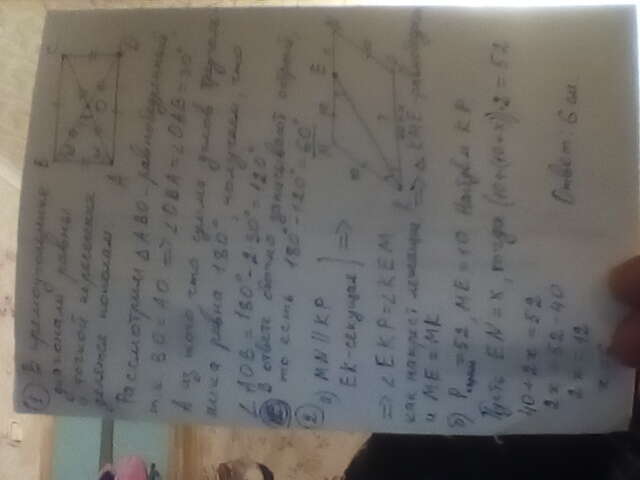 ① В прямоугольнике
диагонали равны
и точкой пересечения
делятся пополам
Рассмотрим △ABO - равнобедренный
т.к. BO = AO => ∠OBA = ∠OAB = 30°
А из того что сумма углов треуголь
ника равна 180° получаем, что
∠AOB = 180° - 2·30° = 120°
В ответе записывай острый,
то есть 180° - 120° = 60°
② а) MN || KP
EK - секущая } =>
=> ∠EKP = ∠KEM
как накрест лежащие => △ - равнобедрен
и ME = MK
б) P = 52, ME = 10 KP
Пусть EN = x, тогда (10+(10+x))·2 = 52
40 + 2x = 52
2x = 52 - 40
2x = 12
x =
Ответ: 6 см.
B
C
A
D
O
E